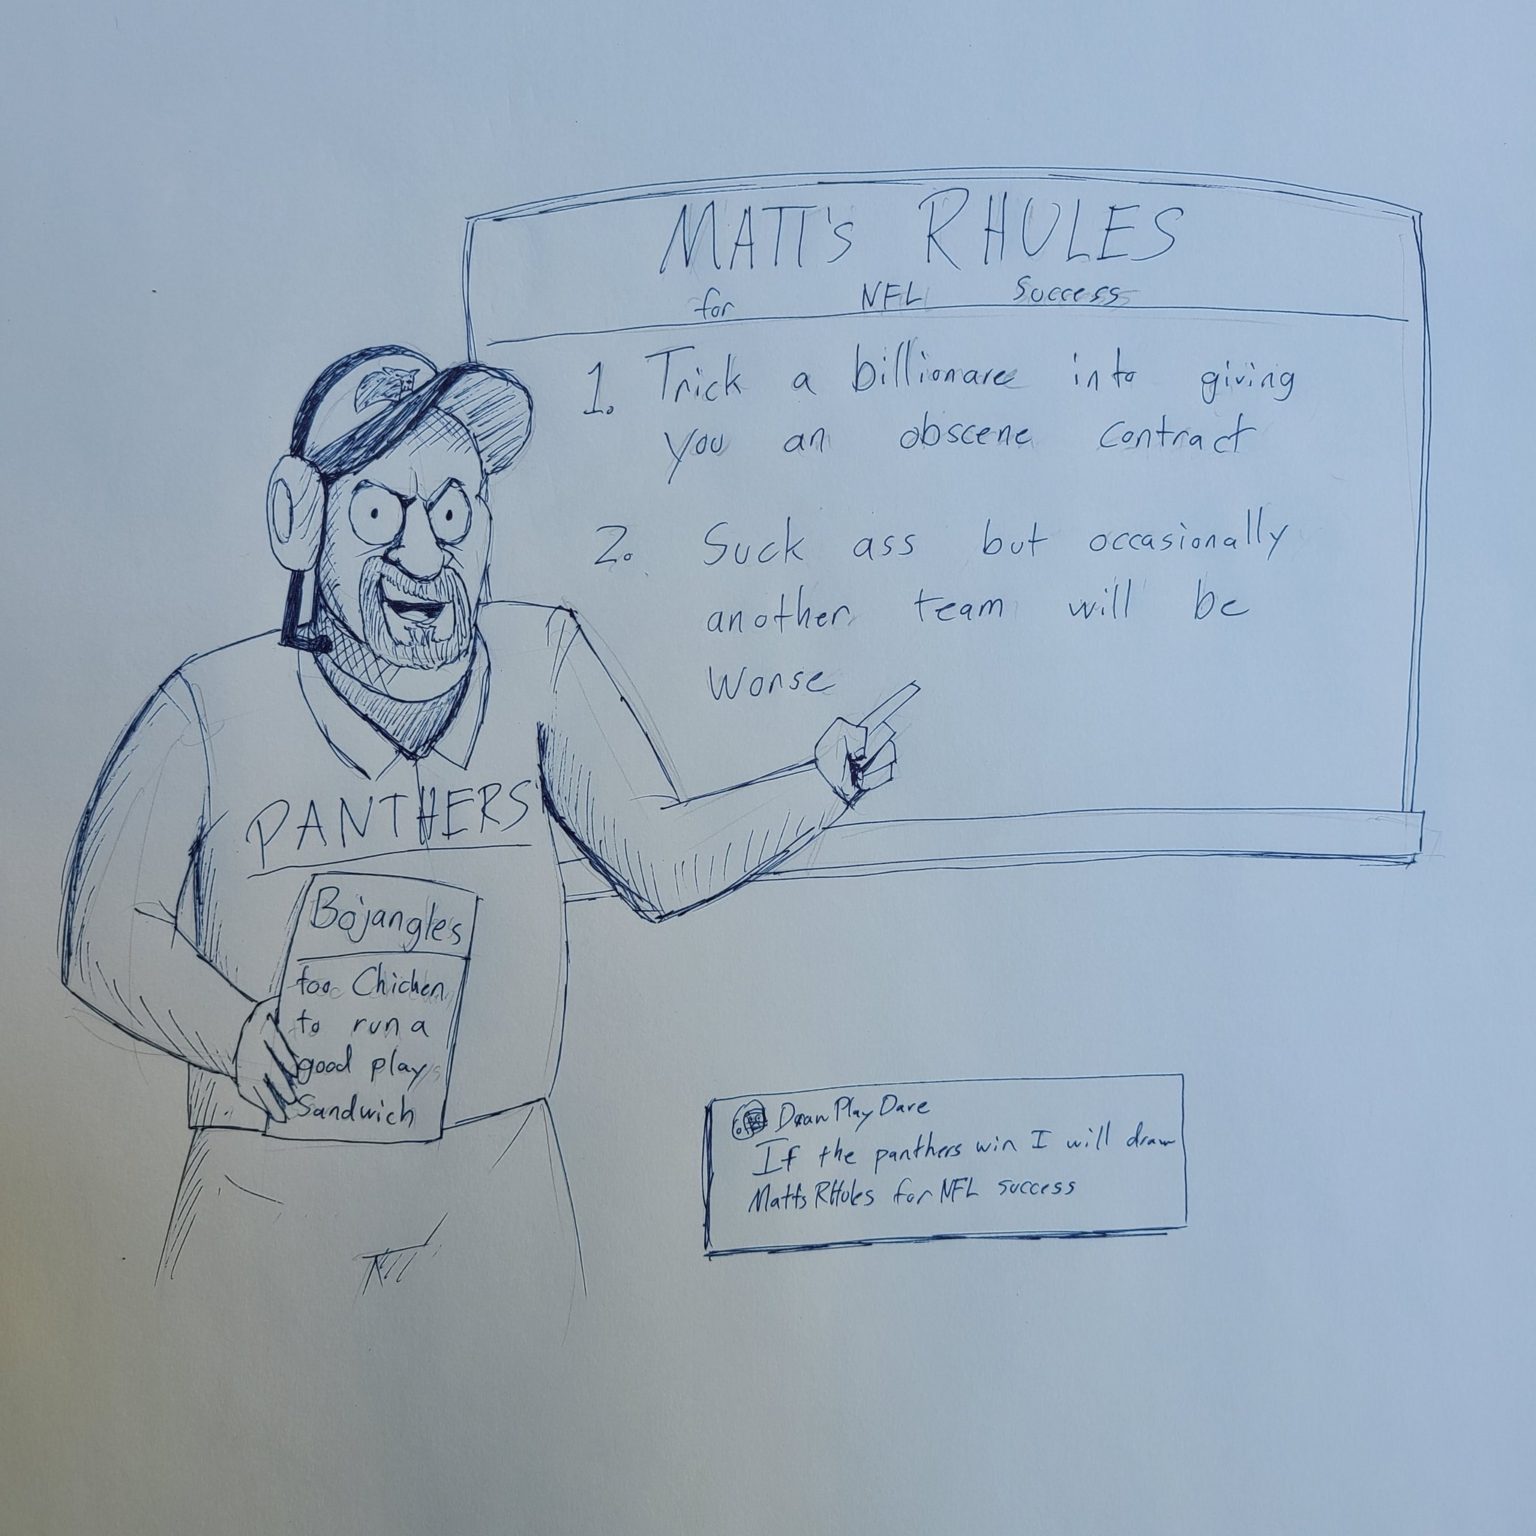 MATT's RHULES
for NFL Success
1. Trick a billionare into giving
you an obscene contract
2. Suck ass but occasionally
another team will be
worse
PANTHERS
Bojangles
too Chicken
to run a
good play
Sandwich
DrawPlayDave
If the panthers win I will draw
Matts RHules for NFL success